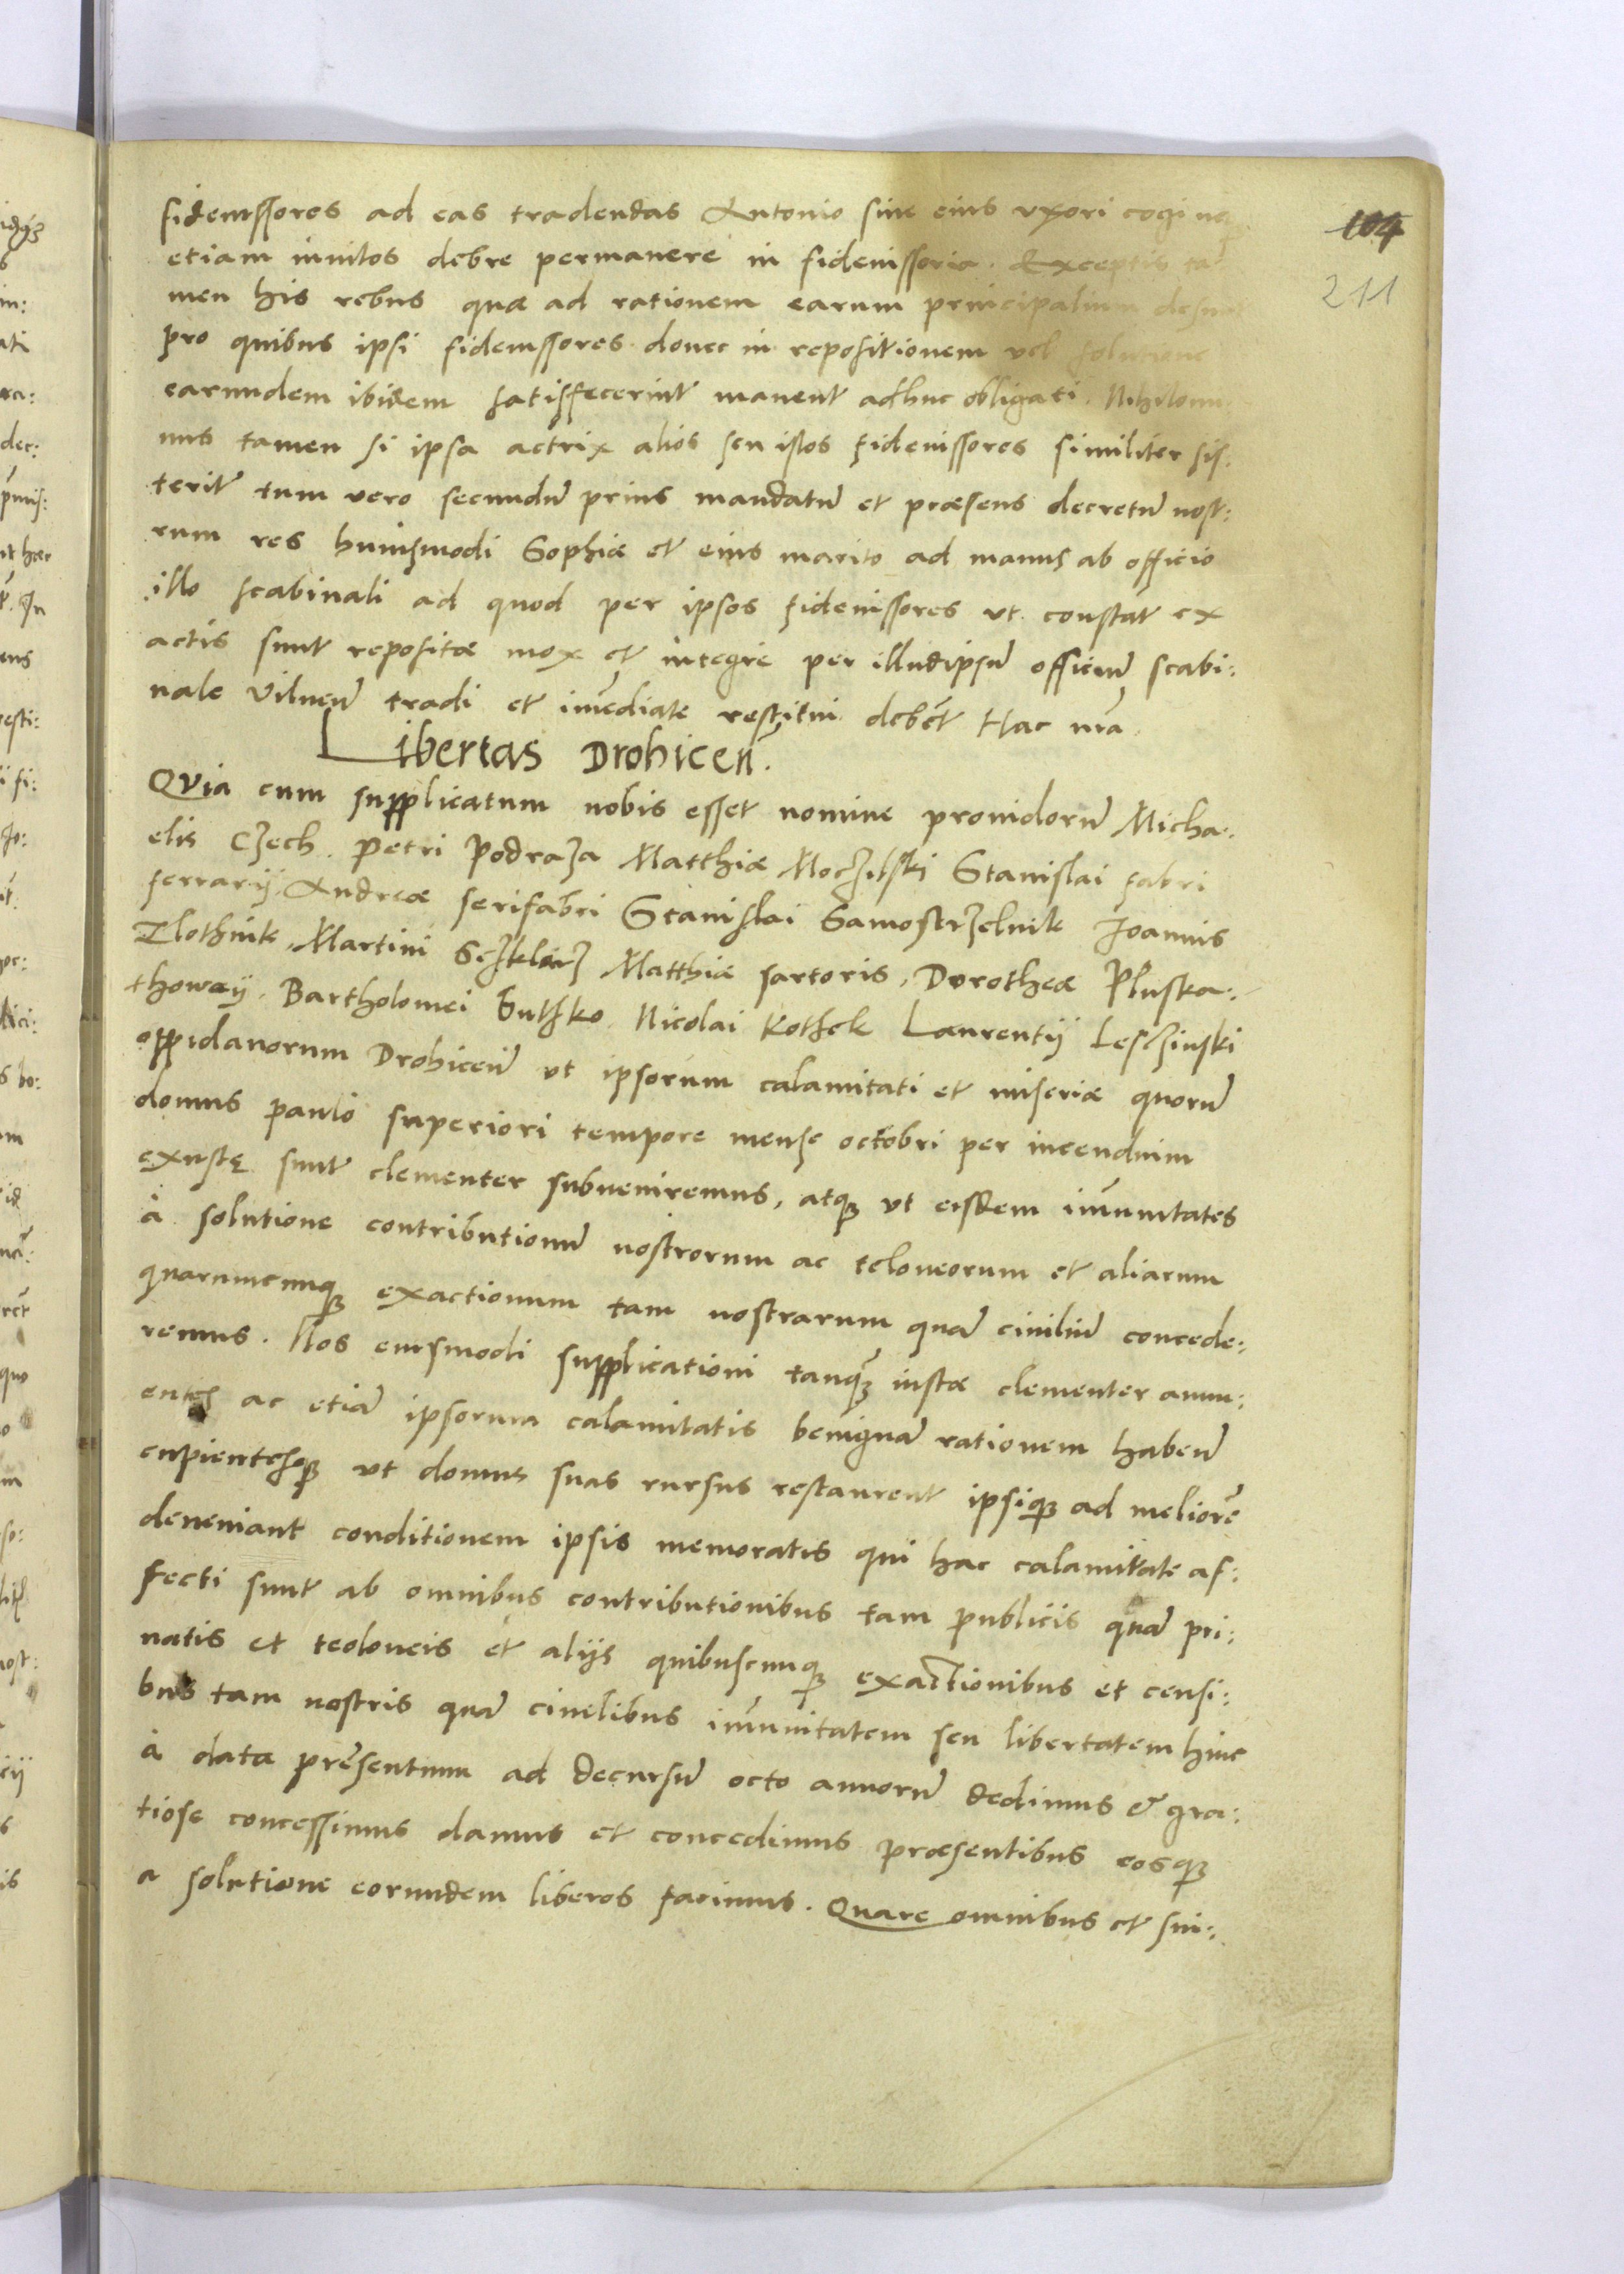 fideiussores ad eas tradendas Antonio siue eius vxori cogi
104
etiam inuitos debre permanere in fideiussoria. Exceptis ta
211
men his rebus quæ ad rationem earum principalium desunt
pro quibus ipsi fideiussores donec in repositionem vel solutione
earundem ibidem satisfecerint manent adhuc obligati. Nihilomi
nus tamen si ipsa actrix alios seu istos fideiussores similiter sis:
terit tum vero secundũ prius mandatũ et præsens decretũ nost:
rum res huiusmodi Sophiæ et eius marito ad manus ab officio
illo scabinali ad quod per ipsos fideiussores vt constat ex
actis sunt repositæ mox et integre per illudipsũ officiũ scabi:
nale Vilneñ tradi et im̃ediate restitui debẽt Hac mã.
Libertas Drohiceñ.
Quia cum supplicatum nobis esset nomine prouidorũ Micha:
elis Czech. Petri Podraza Matthiæ Moczilski Stanislai fabri
ferrarij. Andreæ serifabri Stanislai Samostrzelnik Joannis
Zlothnik, Martini Sczklarz Matthiæ sartoris, Dorotheæ Pluska:
thowey. Bartholomei Suthko Nicolai Kothek Laurentij Lesczinski
oppidanorum Drohiceñ vt ipsorum calamitati et miseriæ quorũ
domus paulo superiori tempore mense octobri per incendium
exustę sunt clementer subueniremus, atqꝫ vt eisdem im̃unitates
à solutione contributionũ nostrorum ac teloneorum et aliarum
quarumcunqꝫ exactionum tam nostrarum quã ciuiliũ concede:
remus. Nos eiusmodi supplicationi tanqꝫ iustæ clementer annu:
entes ac etiã ipsorum calamitatis benignã rationem habeñ
cupientesqꝫ vt domus suas rursus restaurent ipsiqꝫ ad meliorẽ
deueniant conditionem ipsis memoratis qui hac calamitate af:
fecti sunt ab omnibus contributionibus tam publicis quã pri:
uatis et teoloneis et alijs quibuscunqꝫ exactionibus et censi:
bus tam nostris quã ciuilibus im̃unitatem seu libertatem hinc
à data præsentium ad decursũ octo annorũ dedimus & gra:
tiose concessimus damus et concedimus præsentibus eosqꝫ
a solutione eorundem liberos facimus. Quare omnibus et sin: